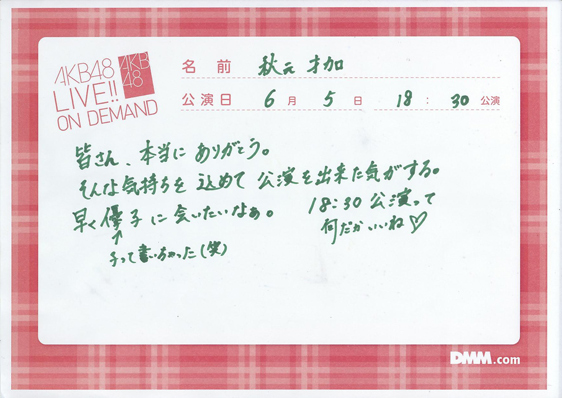 AKB48
LIVE!!
ON DEMAND
AKB
48
名 前 秋元才加
公演日 6月 5日 18:30公演
皆さん、本当にありがとう。
そんな気持ちを込めて公演を出来た気がする。
早く優子に会いたいなぁ。
↑
子って書いちゃった(笑)
18:30公演って
何だかいいね♡
DMM.com